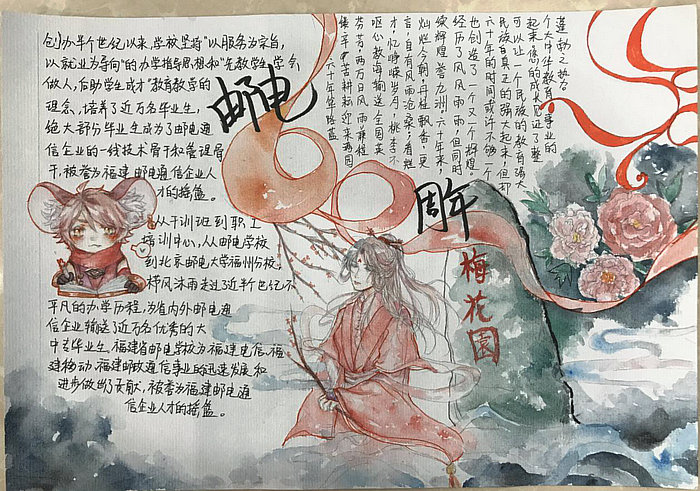 邮电
60
周年
梅花园
创办半个世纪以来,学校坚持"以服务为宗旨,
以就业为导向"的办学指导思想和"先教学生学会
做人,后助学生成才"教育教学的
理念,培养了近万名毕业生,
绝大部分毕业生成为了邮电通
信企业的一线技术骨干和管理骨
干,被誉为福建邮电通信企业人
才的摇篮。
从干训班到职工
培训中心,从邮电学校
到北京邮电大学福州分校,
栉风沐雨走过近半个世纪不
平凡的办学历程,为省内外邮电通
信企业输送了近万名优秀的大
中专毕业生。福建省邮电学校为福建电信、福
建移动、福建邮政通信事业的迅速发展和
进步做出了贡献,被誉为福建邮电通
信企业人才的摇篮。
六十年筚路蓝
缕辛苦耕耘迎来满园
芬芳,两万日风雨兼程
呕心教诲输送全国英
才,忆峥嵘岁月,桃李不
言,自有风雨沧桑,看
灿烂今朝,丹桂飘香,更
续辉煌誉九洲,六十年来,
经历了风风雨雨,但同时
也创造了一个又一个辉煌。
六十年的时间或许不够一个
民族真正的强大起来,但却
可以让一个民族的教育强大
起来,的成长见证了整
个大中华教育事业的
蓬勃之势